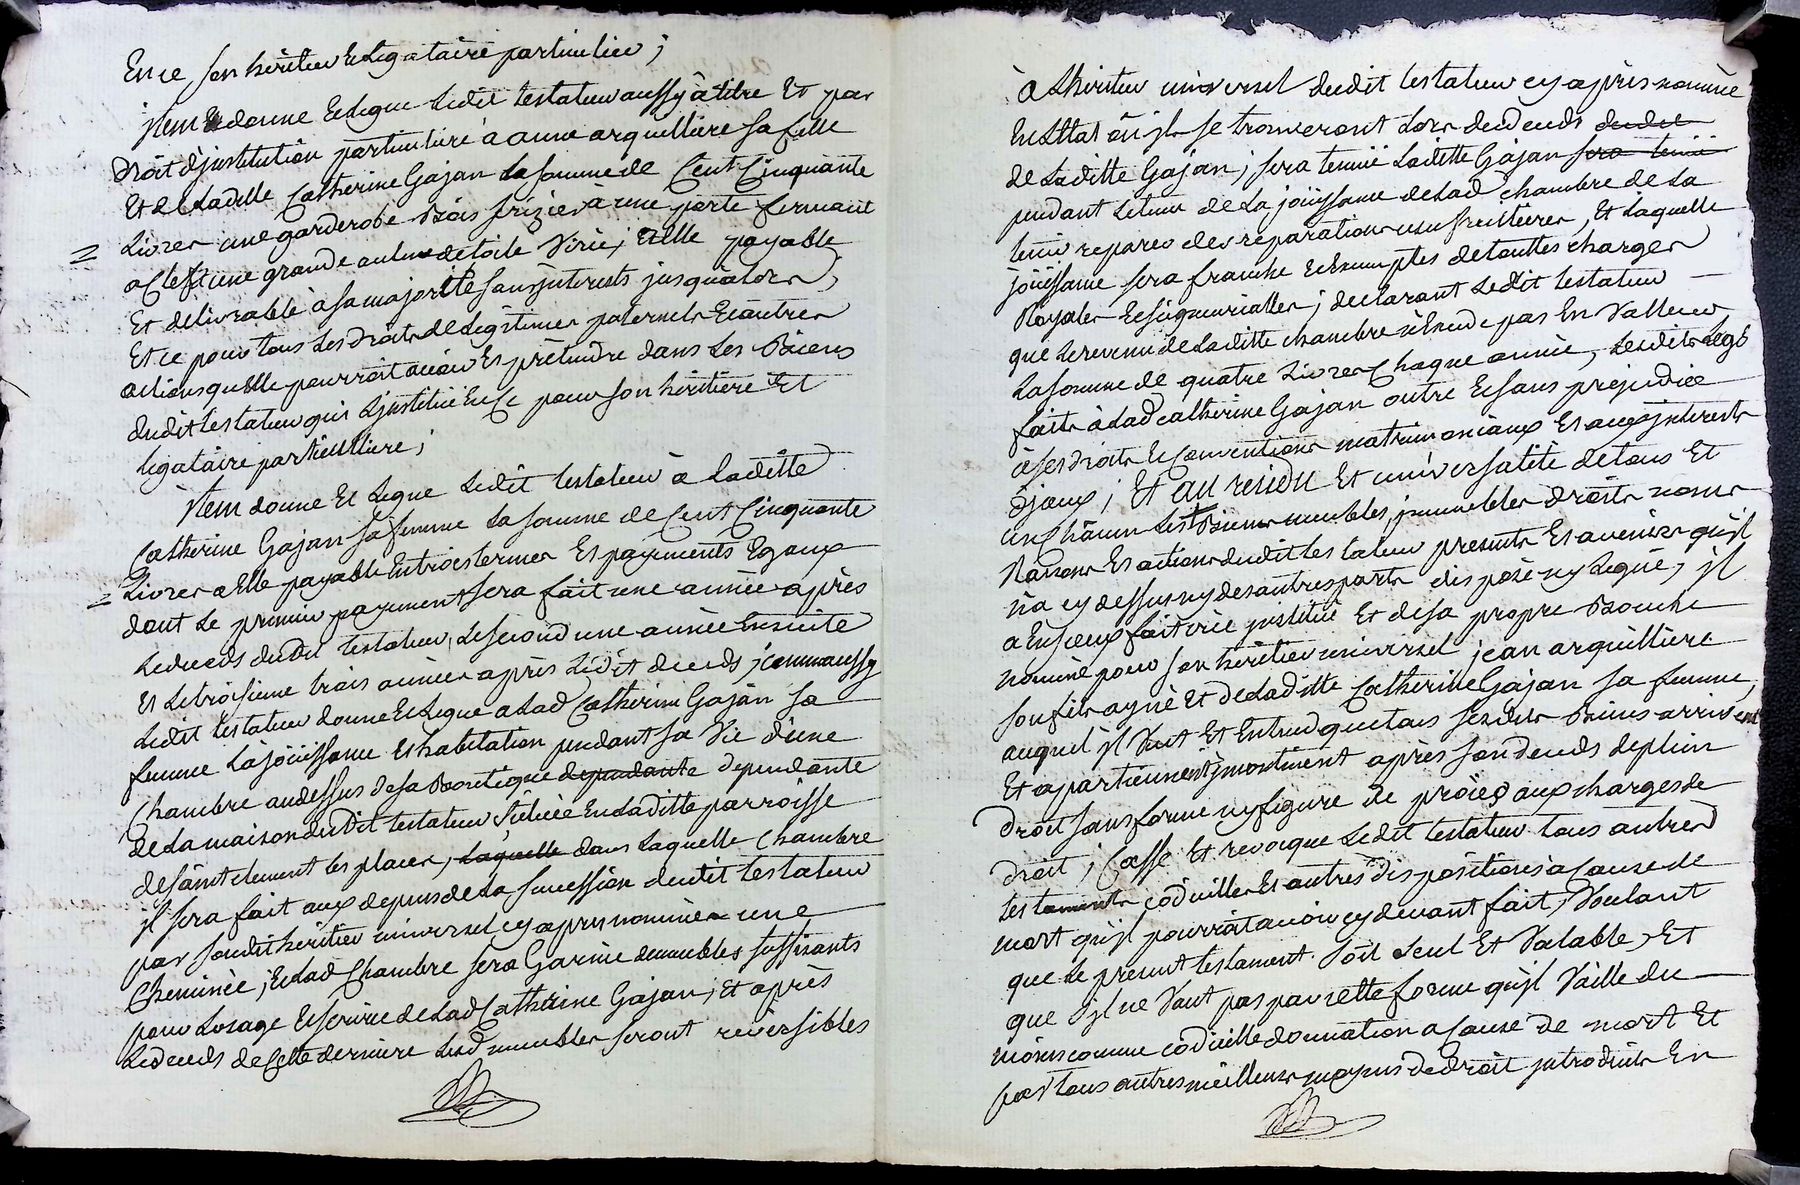 En ce son heritier et legataire particulier ;
jtem donne et legue ledit testateur aussy à titre Et par
droit d'jnstitution particuliere à anne arquilliere sa fille
Et de ladite Catherine Gajan la somme de Cent Cinquante
Livres une garderobe Bois frizier à une porte fermant
a Clef et une grande aulne de toile ; Elle payable
Et delivrable à sa majorité sans jnterests jusqu'alors,
Et ce pour tous les droits de Legitimes paternels Et autres
actions qu'Elle pourroit avoir Et prétendre dans les Biens
dudit testateur qui L'jnstitüe En ce pour son héritiere Et
legataire particulliere ;
jtem donne Et Legue Ledit testateur à Laditte
Catherine Gajan sa femme La somme de Cent Cinquante
Livres a Elle payable En trois termes Et payements Egaux
dont Le premier payement sera fait une année après
Le deceds dudit testateur, Le second une année Ensuite
Et Le troisieme trois années après Ledit deceds ; comme aussy
Ledit testateur donne Et Legue a Lad Catherine Gajan sa
femme La joüissance Et habitation pendant sa Vie d'une
Chambre au dessus de sa Boutique dependante dependante
de La maison dudit testateur Scituée En Laditte parroisse
de saint clement les places, Laquelle dans Laquelle Chambre
jl sera fait aux depens de La succession dudit testateur
par sondit héritier universel cy apres nommé une
Cheminée ; Et Lad Chambre sera Garnie de meubles suffisants
pour Lusage Et service de Lad Catherine Gajan, Et après
Le deceds de Cette derniere Lesd meubles seront reversibles
à L'héritier universel dudit testateur cy après nommé
En L'Etat où jls se trouveront Lors du deceds
de Laditte Gajan ; sera tenüe Laditte Gajan sera tenüe
pendant Le tems de La joüissance de Lad chambre de La
tenir reparée des reparations usufruitieres, Et Laquelle
joüissance sera franche Et Exemptes de touttes charges
Royales Et seigneurialles ; declarant Ledit testateur
que Le revenu de Laditte chambre n'Excede pas En Valleur
La somme de quatre Livres Chaque année, Lesdits Legs
faits à Lad Catherine Gajan outre Et sans prejudice
à ses droits Et Conventions matrimoniaux Et aux jnterests
d'jceux ; Et au residu Et universalité de tous Et
un Chacun Les Biens meubles, jmmeubles droits noms
Raisons Et actions dudit testateur presents Et avenirs qu'jl
n'a cy dessus ny des autres parts disposé ny Legué, jl
a En jceux fait crée jnstitüé Et de sa propre Bouche
nommé pour son héritier universel jean arquilliere
son fils ayné Et de Laditte Catherine Gajan sa femme,
auquel jl Veut Et Entend que tous sesdits Biens arrivent
Et apartiennent jncontinent après son deceds de plein
droit sans forme ny figure de procès aux charges de
droit ; Casse Et revoque Ledit testateur tous autres
testaments codicilles Et autres dispositions a Cause de
mort qu'jl pourroit avoir cy devant fait, Voulant
que Le present testament soit seul Et Valable, Et
que s'jl ne Vaut pas par cette forme qu'jl Vaille du
moins comme codicille donnation a Cause de mort Et
par tous autres meilleurs moyens de droit jntroduits En